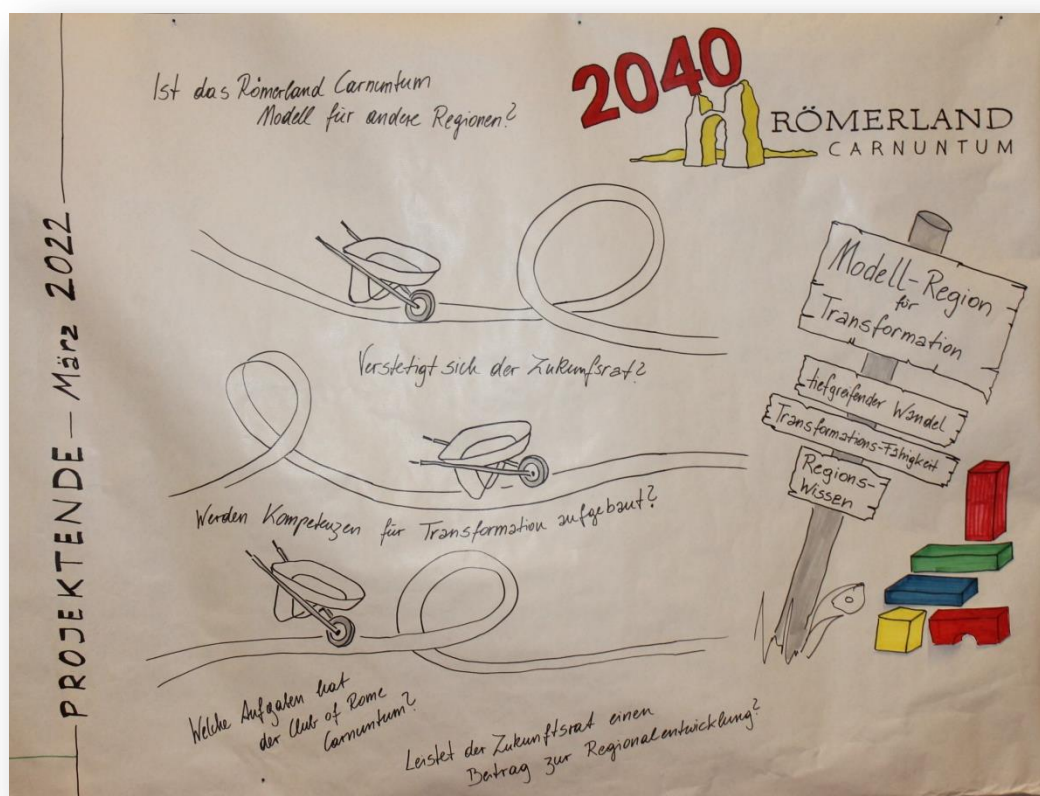 PROJEKTENDE — März 2022
Ist das Römerland Carnuntum
Modell für andere Regionen?
2040
RÖMERLAND
CARNUNTUM
Verstetigt sich der Zukunfsrat?
Werden Kompetenzen für Transformation aufgebaut?
Welche Aufgaben hat
der Club of Rome
Carnuntum?
Leistet der Zukunftsrat einen
Beitrag zur Regionalentwicklung?
Modell-Region
für
Transformation
tiefgreifender Wandel
Transformations-Fähigkeit
Regions-
Wissen